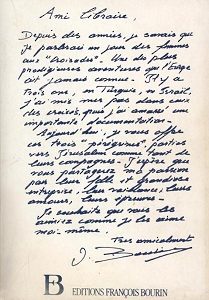 Ami libraire,
Depuis des années, je savais que
je parlerais un jour des femmes
aux "croisades". Une des plus
prodigieuses aventures que l'Europe
ait jamais connue. Il y a
trois ans, en Turquie, en Israël,
j'ai mis mes pas dans ceux
des croisés, puis j'ai amassé une
importante documentation.
Aujourd'hui, je vous offre
ces trois "pérégrines", parties
vers Jérusalem comme tant de
leurs compagnes. J'espère que
vous partagerez ma passion
pour leur folle et grandiose
entreprise, leur vaillance, leurs
amours, leurs épreuves.
Je souhaite que vous les
aimiez comme je les aime
moi-même.
Très amicalement
J.
EB EDITIONS FRANÇOIS BOURIN